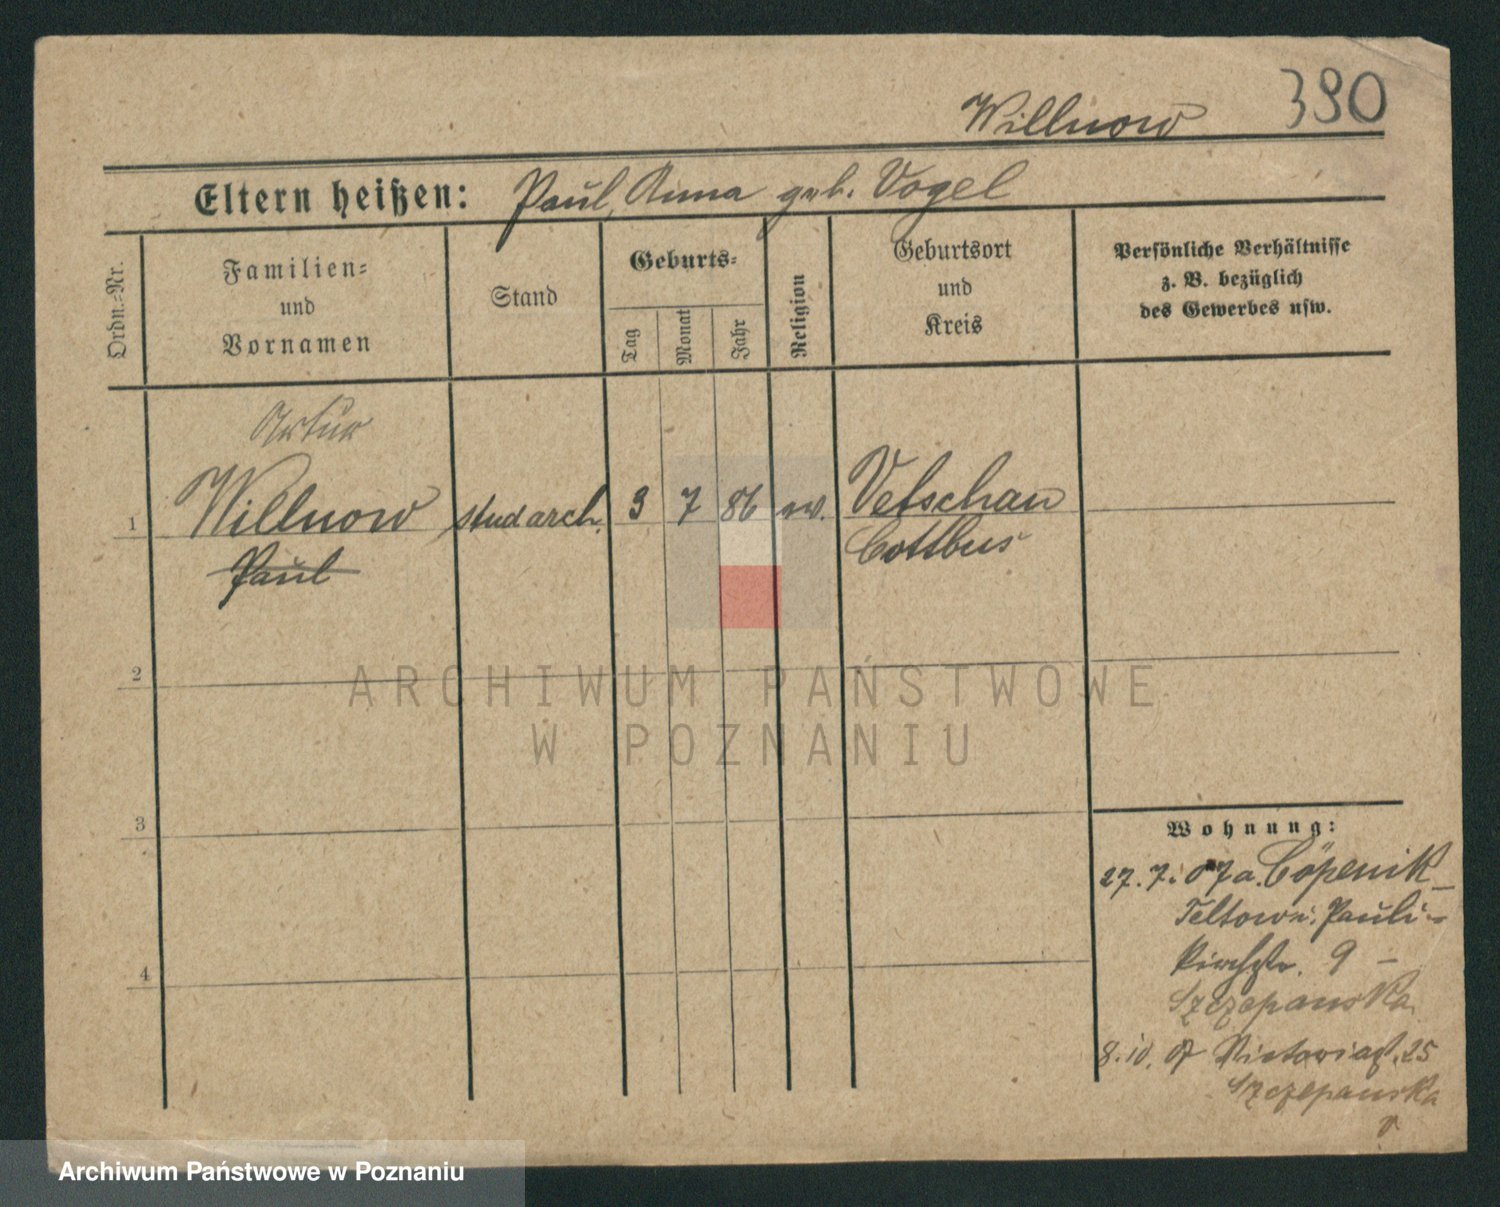 Willnow 390
Eltern heißen: Paul, Anna geb. Vogel
Ordn.-Nr.
Familien-
und
Vornamen
Stand
Geburts-
Tag
Monat
Jahr
Religion
Geburtsort
und
Kreis
Persönliche Verhältnisse
z. B. bezüglich
des Gewerbes usw.
Artur
1 Willnow stud arch. 3 7 86 ev. Vetschau
Paul Cottbus
2
ARCHIWUM PAŃSTWOWE
W POZNANIU
3
Wohnung:
27.7.07 a. Cöpenik
Teltow Pauli-
4
kirchstr. 9 -
Szczepanska
8.10.07 Victoriast. 25
Szczepanska
Archiwum Państwowe w Poznaniu